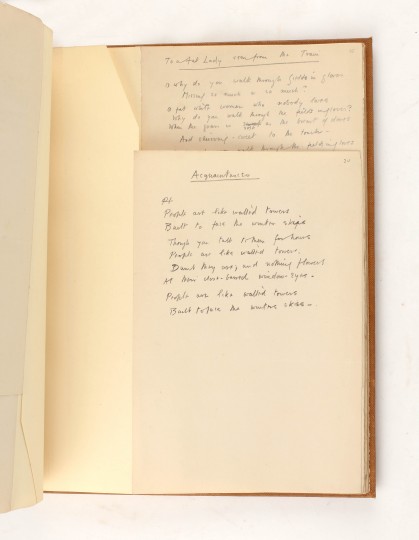 To a Fat Lady seen from the Train
O why do you walk through the fields in gloves
Missing so much & so much?
O fat white woman who nobody loves
Why do you walk through the fields in gloves?
When the grass is soft as the breast of doves
And shivering-sweet to the touch.
walk through the fields in gloves
20
Acquaintances
People are like walled towers
Built to face the winter skies
Though you talk to them for hours
People are like walled towers.
Dumb they are, and nothing flowers
At their close-barred window-eyes.
People are like walled towers
Built to face the winter skies.